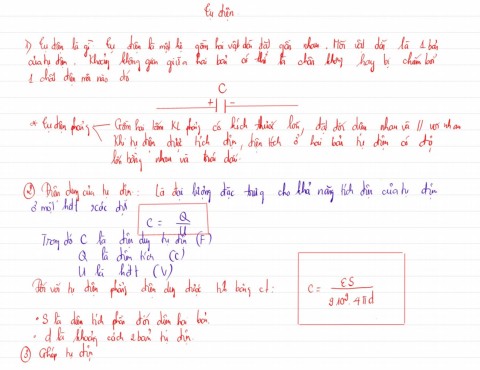 Tụ điện
1) Tụ điện là gì Tụ điện là một hệ gồm hai vật dẫn đặt gần nhau. Mỗi vật dẫn là 1 bản
của tụ điện. Khoảng không gian giữa hai bản có thể là chân không hay bị chiếm bởi
1 chất điện môi nào đó
C
+ -
* Tụ điện phẳng Gồm hai tấm KL phẳng có kích thước lớn, đặt đối diện nhau và // với nhau
Khi tụ điện được tích điện, điện tích ở hai bản tụ điện có độ
lớn bằng nhau và trái dấu.
② Điện dung của tụ điện: Là đại lượng đặc trưng cho khả năng tích điện của tụ điện
ở một hđt xác định
C = Q / U
Trong đó C là điện dung tụ điện (F)
Q là điện tích (C)
U là hđt (V)
Đối với tụ điện phẳng điện dung được tính bằng ct:
C = εS / 9.10⁹.4πd
• S là diện tích phần đối diện hai bản.
• d là khoảng cách 2 bản tụ điện.
③ Ghép tụ điện